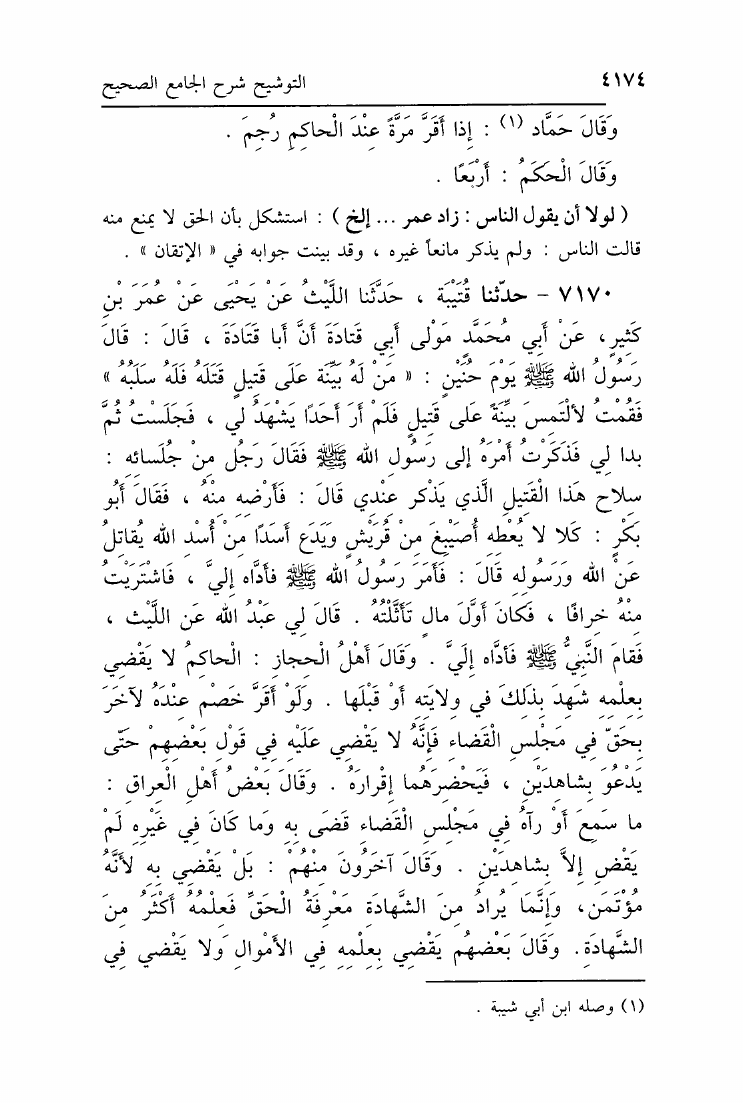 ٤١٧٤ التوشيح شرح الجامع الصحيح
وَقَالَ حَمَّاد (١) : إِذا أَقَرَّ مَرَّةً عِنْدَ الْحاكِمِ رُجِمَ .
وَقَالَ الْحَكَمُ : أَرْبَعًا .
( لولا أن يقول الناس : زاد عمر ... إلخ ) : استشكل بأن الحق لا يمنع منه
قالت الناس : ولم يذكر مانعاً غيره ، وقد بينت جوابه في « الإتقان » .
٧١٧٠ – حدّثنا قُتَيْبَة ، حَدَّثَنا اللَّيْثُ عَنْ يَحْيَى عَنْ عُمَرَ بْنِ
كَثِيرٍ، عَنْ أَبِي مُحَمَّدٍ مَوْلى أَبِي قَتادَةَ أَنَّ أَبا قَتَادَةَ ، قَالَ : قَالَ
رَسُولُ الله ﷺ يَوْمَ حُنَيْنٍ : « مَنْ لَهُ بَيِّنَة عَلَى قَتِيلٍ قَتَلَهُ فَلَهُ سَلَبُهُ »
فَقُمْتُ لألْتَمِسَ بَيِّنَةً عَلى قَتِيلٍ فَلَمْ أَرَ أَحَدًا يَشْهَدُ لي ، فَجَلَسْتُ ثُمَّ
بدا لِي فَذَكَرْتُ أَمْرَهُ إلى رَسُولِ الله ﷺ فَقَالَ رَجُل مِنْ جُلَسائِهِ :
سِلاح هَذا الْقَتِيلِ الَّذي يَذْكر عِنْدِي قَالَ : فَأَرْضِهِ مِنْهُ ، فَقَالَ أَبُو
بَكْرٍ : كَلا لا يُعْطِهِ أُصَيْبِغَ مِنْ قُرَيْشٍ وَيَدَع أَسَدًا مِنْ أُسْدِ الله يُقاتِلُ
عَنْ الله وَرَسُولِهِ قَالَ : فَأَمَرَ رَسُولُ الله ﷺ فَأَدَّاه إِلَيَّ ، فَاشْتَرَيْتُ
مِنْهُ خِرافًا ، فَكانَ أَوَّلَ مالٍ تَأَثَّلْتُهُ . قَالَ لِي عَبْدُ الله عَنِ اللَّيْث ،
فَقامَ النَّبِيُّ ﷺ فَأَدَّاه إِلَيَّ . وَقَالَ أَهْلُ الْحجازِ : الْحاكِمُ لا يَقْضِي
بِعِلْمِهِ شَهِدَ بِذَلِكَ فِي وِلايَتِهِ أَوْ قَبْلَها . وَلَوْ أَقَرَّ خَصْم عِنْدَهُ لآخَرَ
بِحَقّ فِي مَجْلِسِ الْقَضاء فَإِنَّهُ لا يَقْضِي عَلَيْهِ فِي قَوْلِ بَعْضِهِمْ حَتَّى
يَدْعُوَ بِشاهِدَيْنِ ، فَيَحْضِرَهُما إِقْرارَهُ . وَقَالَ بَعْضُ أَهْلِ الْعِراق :
ما سَمِعَ أَوْ رَآهُ فِي مَجْلِسِ الْقَضاءِ قَضَى بِهِ وَما كَانَ فِي غَيْرِهِ لَمْ
يَقْضِ إِلاَّ بِشاهِدَيْنِ . وَقَالَ آخَرُونَ مِنْهُمْ : بَلْ يَقْضِي بِهِ لأَنَّهُ
مُؤْتَمَن، وَإِنَّمَا يُرادُ مِنَ الشَّهادَةِ مَعْرِفَةُ الْحَقِّ فَعِلْمُهُ أَكْثَرُ مِنَ
الشَّهادَةِ. وَقَالَ بَعْضهُم يَقْضِي بِعِلْمِهِ فِي الأَمْوالِ وَلا يَقْضِي فِي
(١) وصله ابن أبي شيبة .